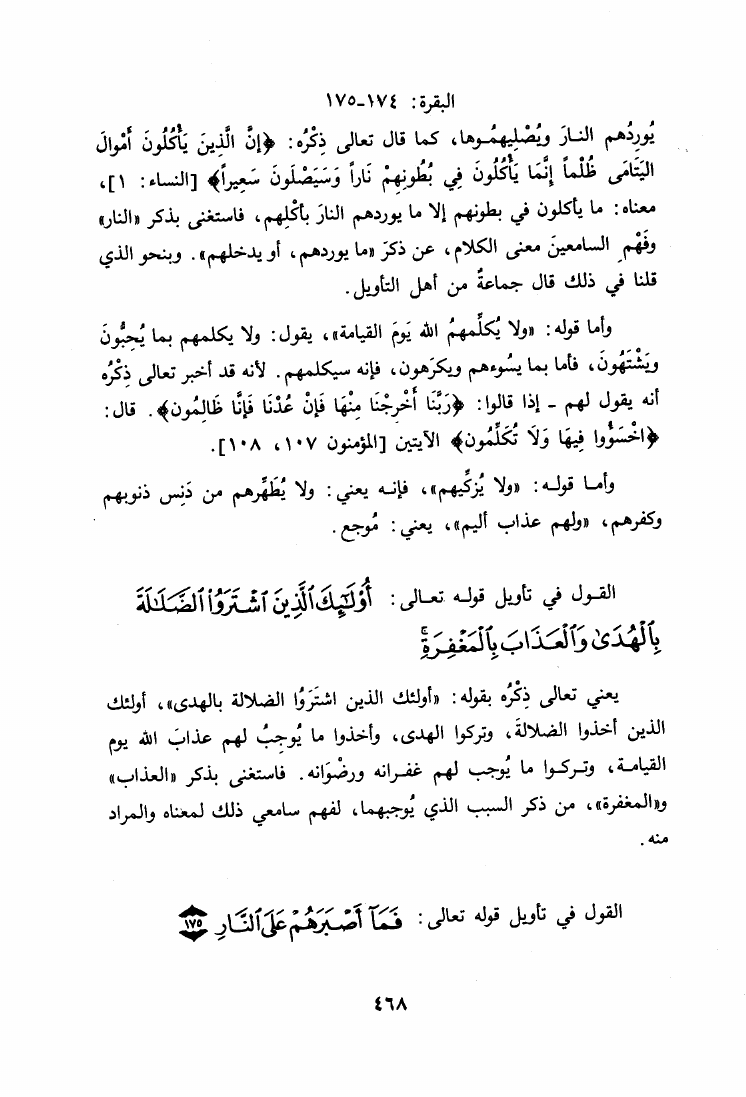 البقرة: ١٧٤-١٧٥
يُورِدُهم النارَ ويُصْلِيهمُوها، كما قال تعالى ذِكْرُه: ﴿إنَّ الَّذِينَ يَأْكُلُونَ أَمْوالَ
اليَتَامَى ظُلْماً إنَّمَا يَأْكُلُونَ فِي بُطُونِهِمْ نَاراً وَسَيَصْلَونَ سَعِيراً﴾ [النساء: ١]،
معناه: ما يأكلون في بطونهم إلا ما يوردهم النارَ بأكْلِهم، فاستغنى بذكر «النار»
وفَهْمِ السامعينَ معنى الكلام، عن ذكرَ «ما يوردهم، أو يدخلهم». وبنحو الذي
قلنا في ذلك قال جماعةٌ من أهل التأويل.
وأما قوله: «ولا يُكلِّمهمُ الله يَومَ القيامة»، يقول: ولا يكلمهم بما يُحِبُّونَ
ويَشْتَهُونَ، فأما بما يسُوءهم ويكرَهون، فإنه سيكلمهم. لأنه قد أخبر تعالى ذِكْرُه
أنه يقول لهم - إذا قالوا: ﴿رَبَّنَا أَخْرِجْنَا مِنْهَا فَإنْ عُدْنَا فَإنَّا ظَالِمُون﴾. قال:
﴿اخْسَؤُوا فِيهَا وَلَا تُكَلِّمُون﴾ الآيتين [المؤمنون ١٠٧، ١٠٨].
وأما قوله: «ولا يُزكِّيهم»، فإنه يعني: ولا يُطَهِّرهم من دَنِس ذنوبهم
وكفرهم، «ولهم عذاب أليم»، يعني: مُوجع.
القول في تأويل قوله تعالى: أُوْلَٰٓئِكَ ٱلَّذِينَ ٱشْتَرَوُا۟ ٱلضَّلَٰلَةَ
بِٱلْهُدَىٰ وَٱلْعَذَابَ بِٱلْمَغْفِرَةِۚ
يعني تعالى ذِكْرُه بقوله: «أولئك الذين اشتَرَوُا الضلالة بالهدى»، أولئك
الذين أخذوا الضلالةَ، وتركوا الهدى، وأخذوا ما يُوجِبُ لهم عذابَ الله يوم
القيامة، وتركوا ما يُوجب لهم غفرانه ورضْوَانه. فاستغنى بذكر «العذاب»
و«المغفرة»، من ذكر السبب الذي يُوجبهما، لفهم سامعي ذلك لمعناه والمراد
منه.
القول في تأويل قوله تعالى: فَمَآ أَصْبَرَهُمْ عَلَى ٱلنَّارِ ١٧٥
٤٦٨